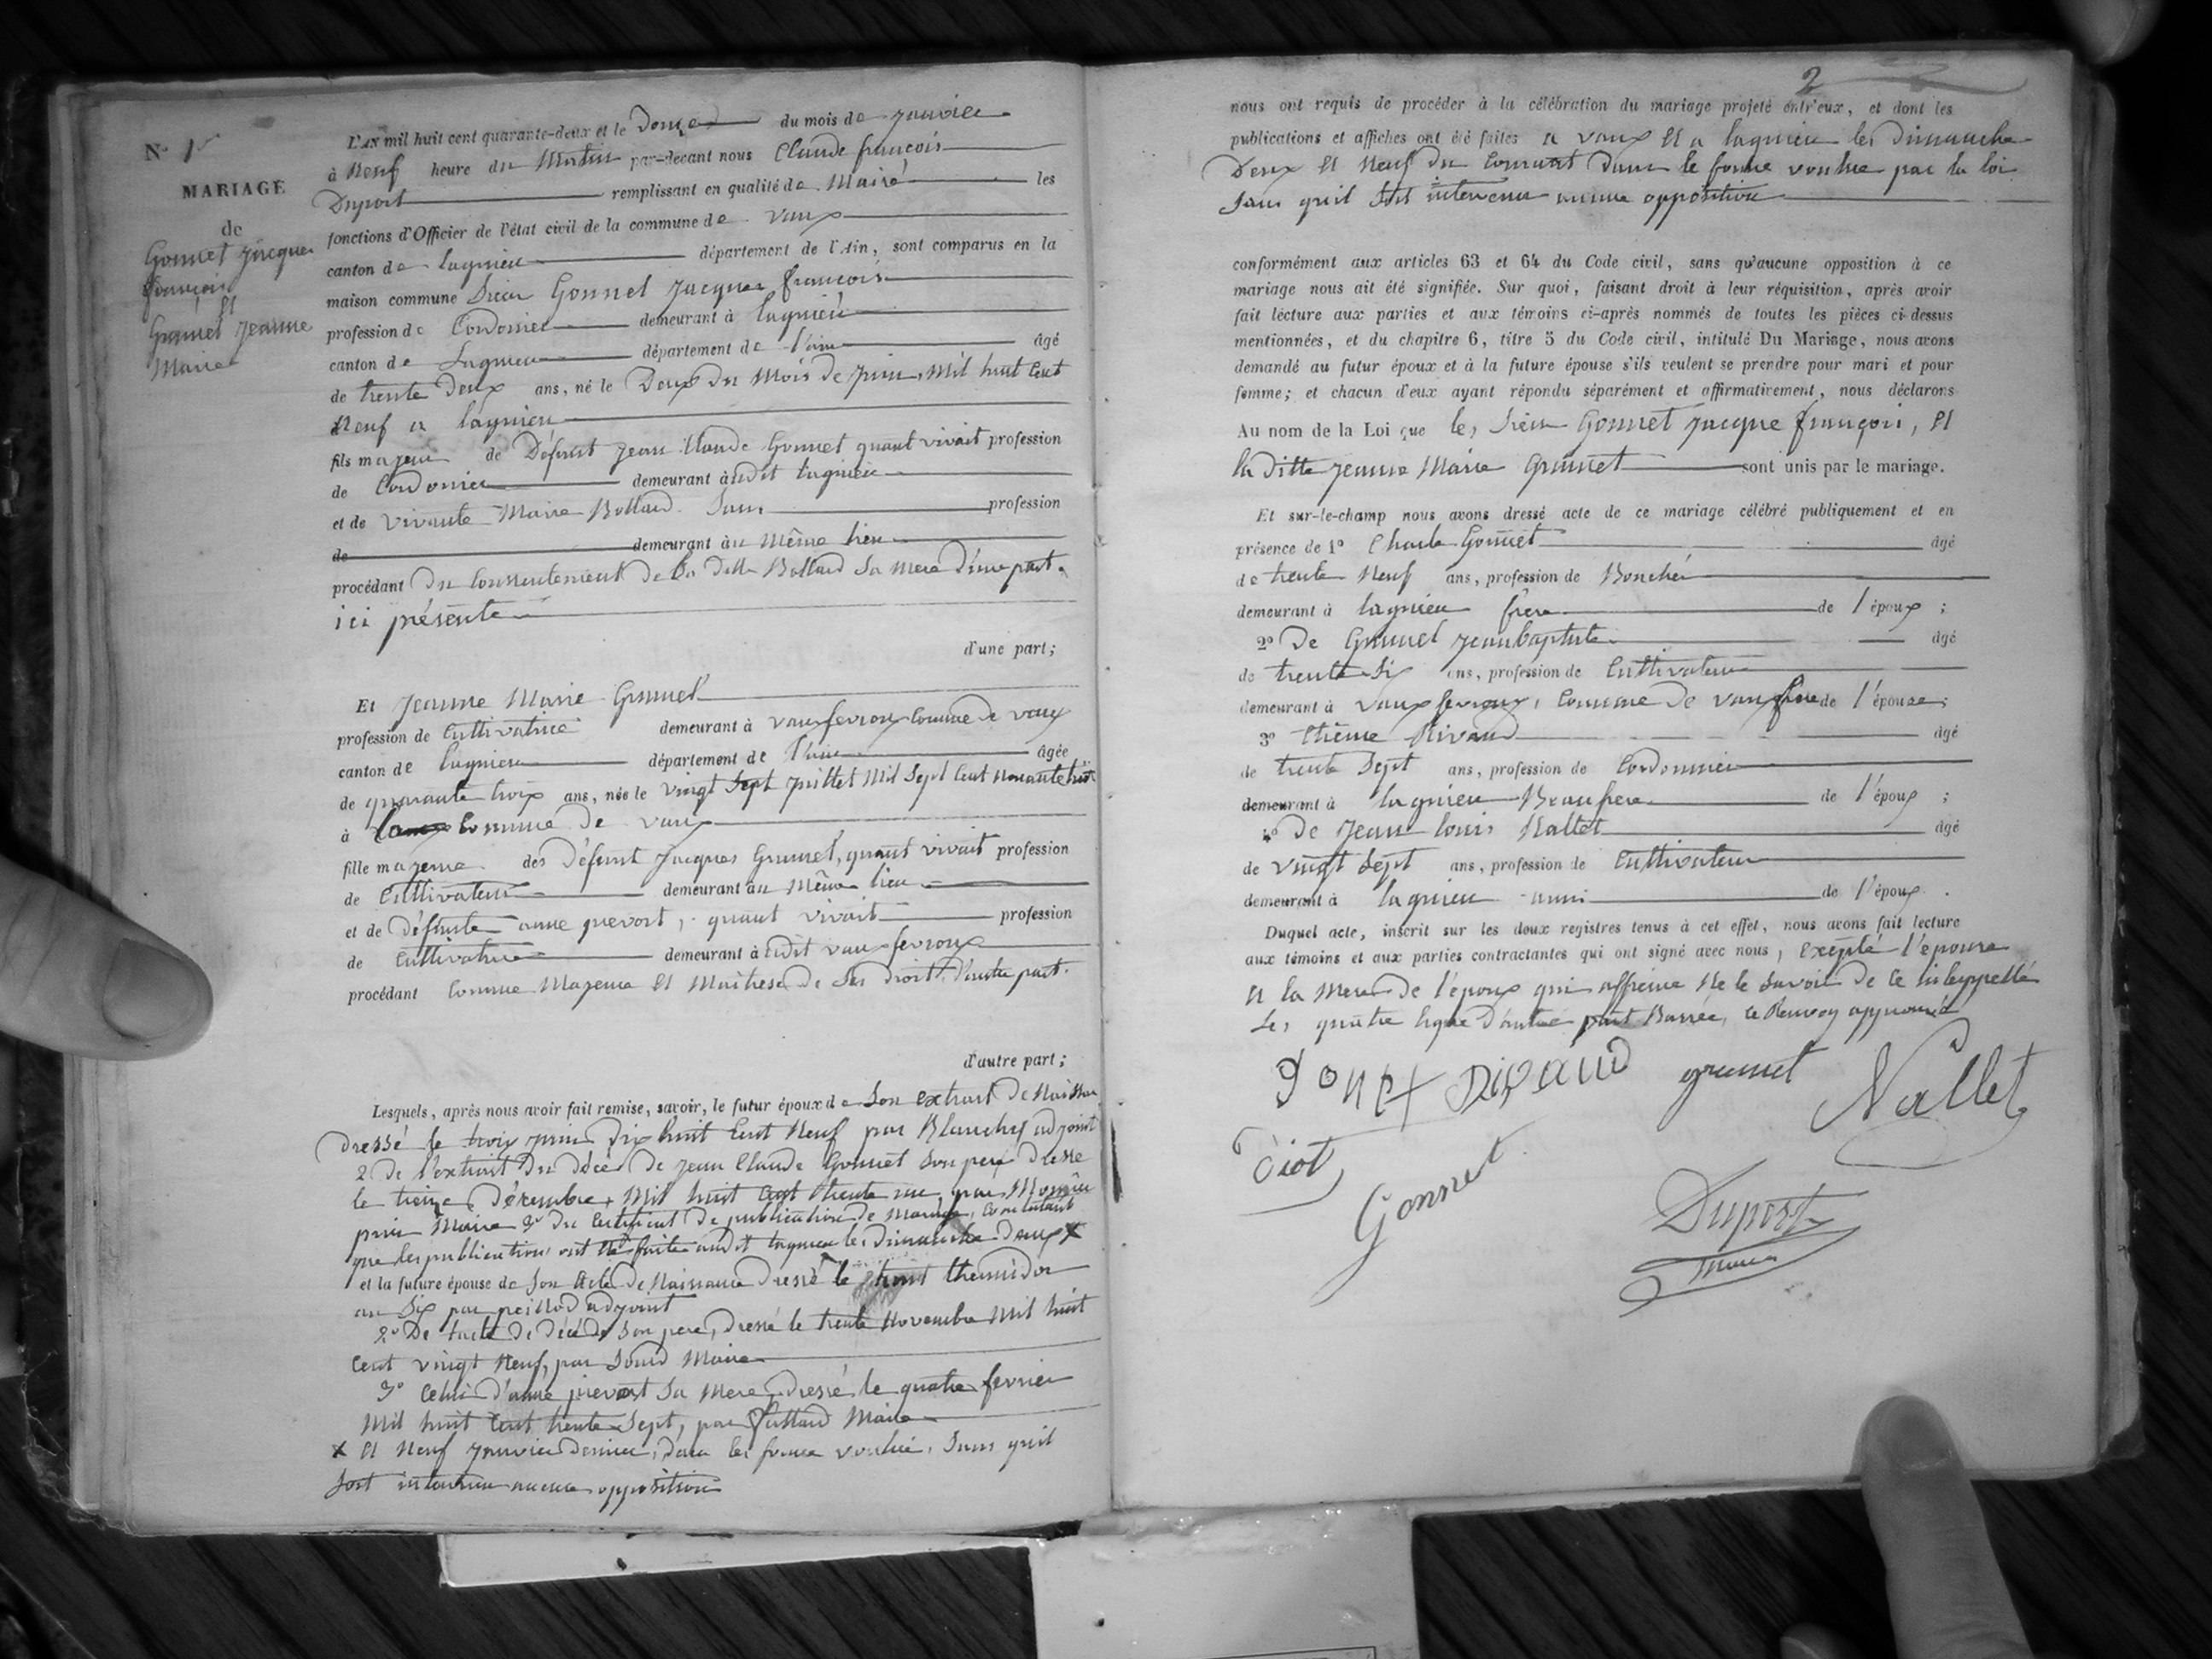 N° 1er
MARIAGE
de
Gonnet Jacques
françois
Et
Grumet Jeanne
Marie
L'AN mil huit cent quarante-deux et le Douze du mois de Janvier
à Neuf heure du Matin par-devant nous Claude françois
Duport remplissant en qualité de Maire les
fonctions d'Officier de l'état civil de la commune de vaux
canton de lagnieu département de l'Ain, sont comparus en la
maison commune Sieur Gonnet Jacques françois
profession de Cordonier demeurant à lagnieu
canton de Lagnieu département de l'ain âgé
de trente Deux ans, né le Deux du Mois de Juin, Mil huit Cent
Neuf a lagnieu
fils majeur de Défunt Jean Claude Gonnet quant vivait profession
de Cordonier demeurant àudit lagnieu
et de vivante Marie Bollard Sans profession
de demeurant àu Même lieu
procédant Du Consentement de la ditte Bollard Sa Mere D'une part
ici présente
d'une part;
Et Jeanne Marie Grumet
profession de Cultivatrice demeurant à vauxfevroux Comune de vaux
canton de lagnieu département de l'ain âgée
de quarante trois ans, née le vingt Sept Juillet Mil Sept Cent Nonante huit
à Commune de vaux
fille majeure des Défunt Jacques Grumet, quant vivait profession
de Cultivateur demeurant àu Même lieu
et de défunte anne prevost, quant vivait profession
de Cultivatrice demeurant à udit vauxfevroux
procédant Comme Majeure Et Maitresse de Ses droit D'autre part.
d'autre part;
Lesquels, après nous avoir fait remise, savoir, le futur époux de Son extrait de Naissan
Dressé le trois Juin Dix huit Cent Neuf par Blanchy adjoint
2 De l'extrait Du décé de Jean Claude Gonnet Son pere Dressé
le treize Décembre Mil huit Cent trente un, par
Maire 3° du Certificat De publication de Mariage, Constatant
que les publication ont été faite audit lagnieu les Dimanche Deux X
et la future épouse de Son Acte De Naissance Dressé le huit thermidor
an Six par peillod adjoint
2° De l'acte De décé De Son pere, Dressé le trente Novembre Mil huit
Cent vingt Neuf, par Maire
3° Celui d'anne prevost Sa Mere, dressé le quatre fevrier
Mil huit Cent trente Sept, par Maire
X Et Neuf Janvier Dernier, dans les forme voulue, Sans quil
Soit intervenu aucune opposition
2
nous ont requis de procéder à la célébration du mariage projeté entr'eux, et dont les
publications et affiches ont été faites a vaux Et a lagnieu les Dimanche
Deux Et Neuf du Courant Dans le forme voulue par la loi
Sans quil Soit intervenu aucune opposition
conformément aux articles 63 et 64 du Code civil, sans qu'aucune opposition à ce
mariage nous ait été signifiée. Sur quoi, faisant droit à leur réquisition, après avoir
fait lecture aux parties et aux témoins ci-après nommés de toutes les pièces ci-dessus
mentionnées, et du chapitre 6, titre 5 du Code civil, intitulé Du Mariage, nous avons
demandé au futur époux et à la future épouse s'ils veulent se prendre pour mari et pour
femme; et chacun d'eux ayant répondu séparément et affirmativement, nous déclarons
Au nom de la Loi que les Sieur Gonnet Jacque françois, Et
la Ditte Jeanne Marie Grumet sont unis par le mariage.
Et sur-le-champ nous avons dressé acte de ce mariage célébré publiquement et en
présence de 1° Charle Gonnet âgé
de trente Neuf ans, profession de Bouché
demeurant à lagnieu frère de l'époux ;
2° De Grumet Jeanbaptiste âgé
de trente Six ans, profession de Cultivateur
demeurant à vauxfevroux, Commune De vaux frere de l'épouse;
3° Etiène Rivaud âgé
de trente Sept ans, profession de Cordonnier
demeurant à lagnieu Beaufrere de l'époux ;
4° De Jean louis Nallet âgé
de vingt Sept ans, profession de Cultivateur
demeurant à lagnieu ami de l'époux .
Duquel acte, inscrit sur les deux registres tenus à cet effet, nous avons fait lecture
aux témoins et aux parties contractantes qui ont signé avec nous, Exepté l'épouse
Et la Mere De l'époux qui affirme Ne le Savoir De Ce interppellé
Les quatre ligne D'autre part Barrée, le Renvoy approuvé
gonet Rivaud grumet Nallet
Gonnet
Duport
maire